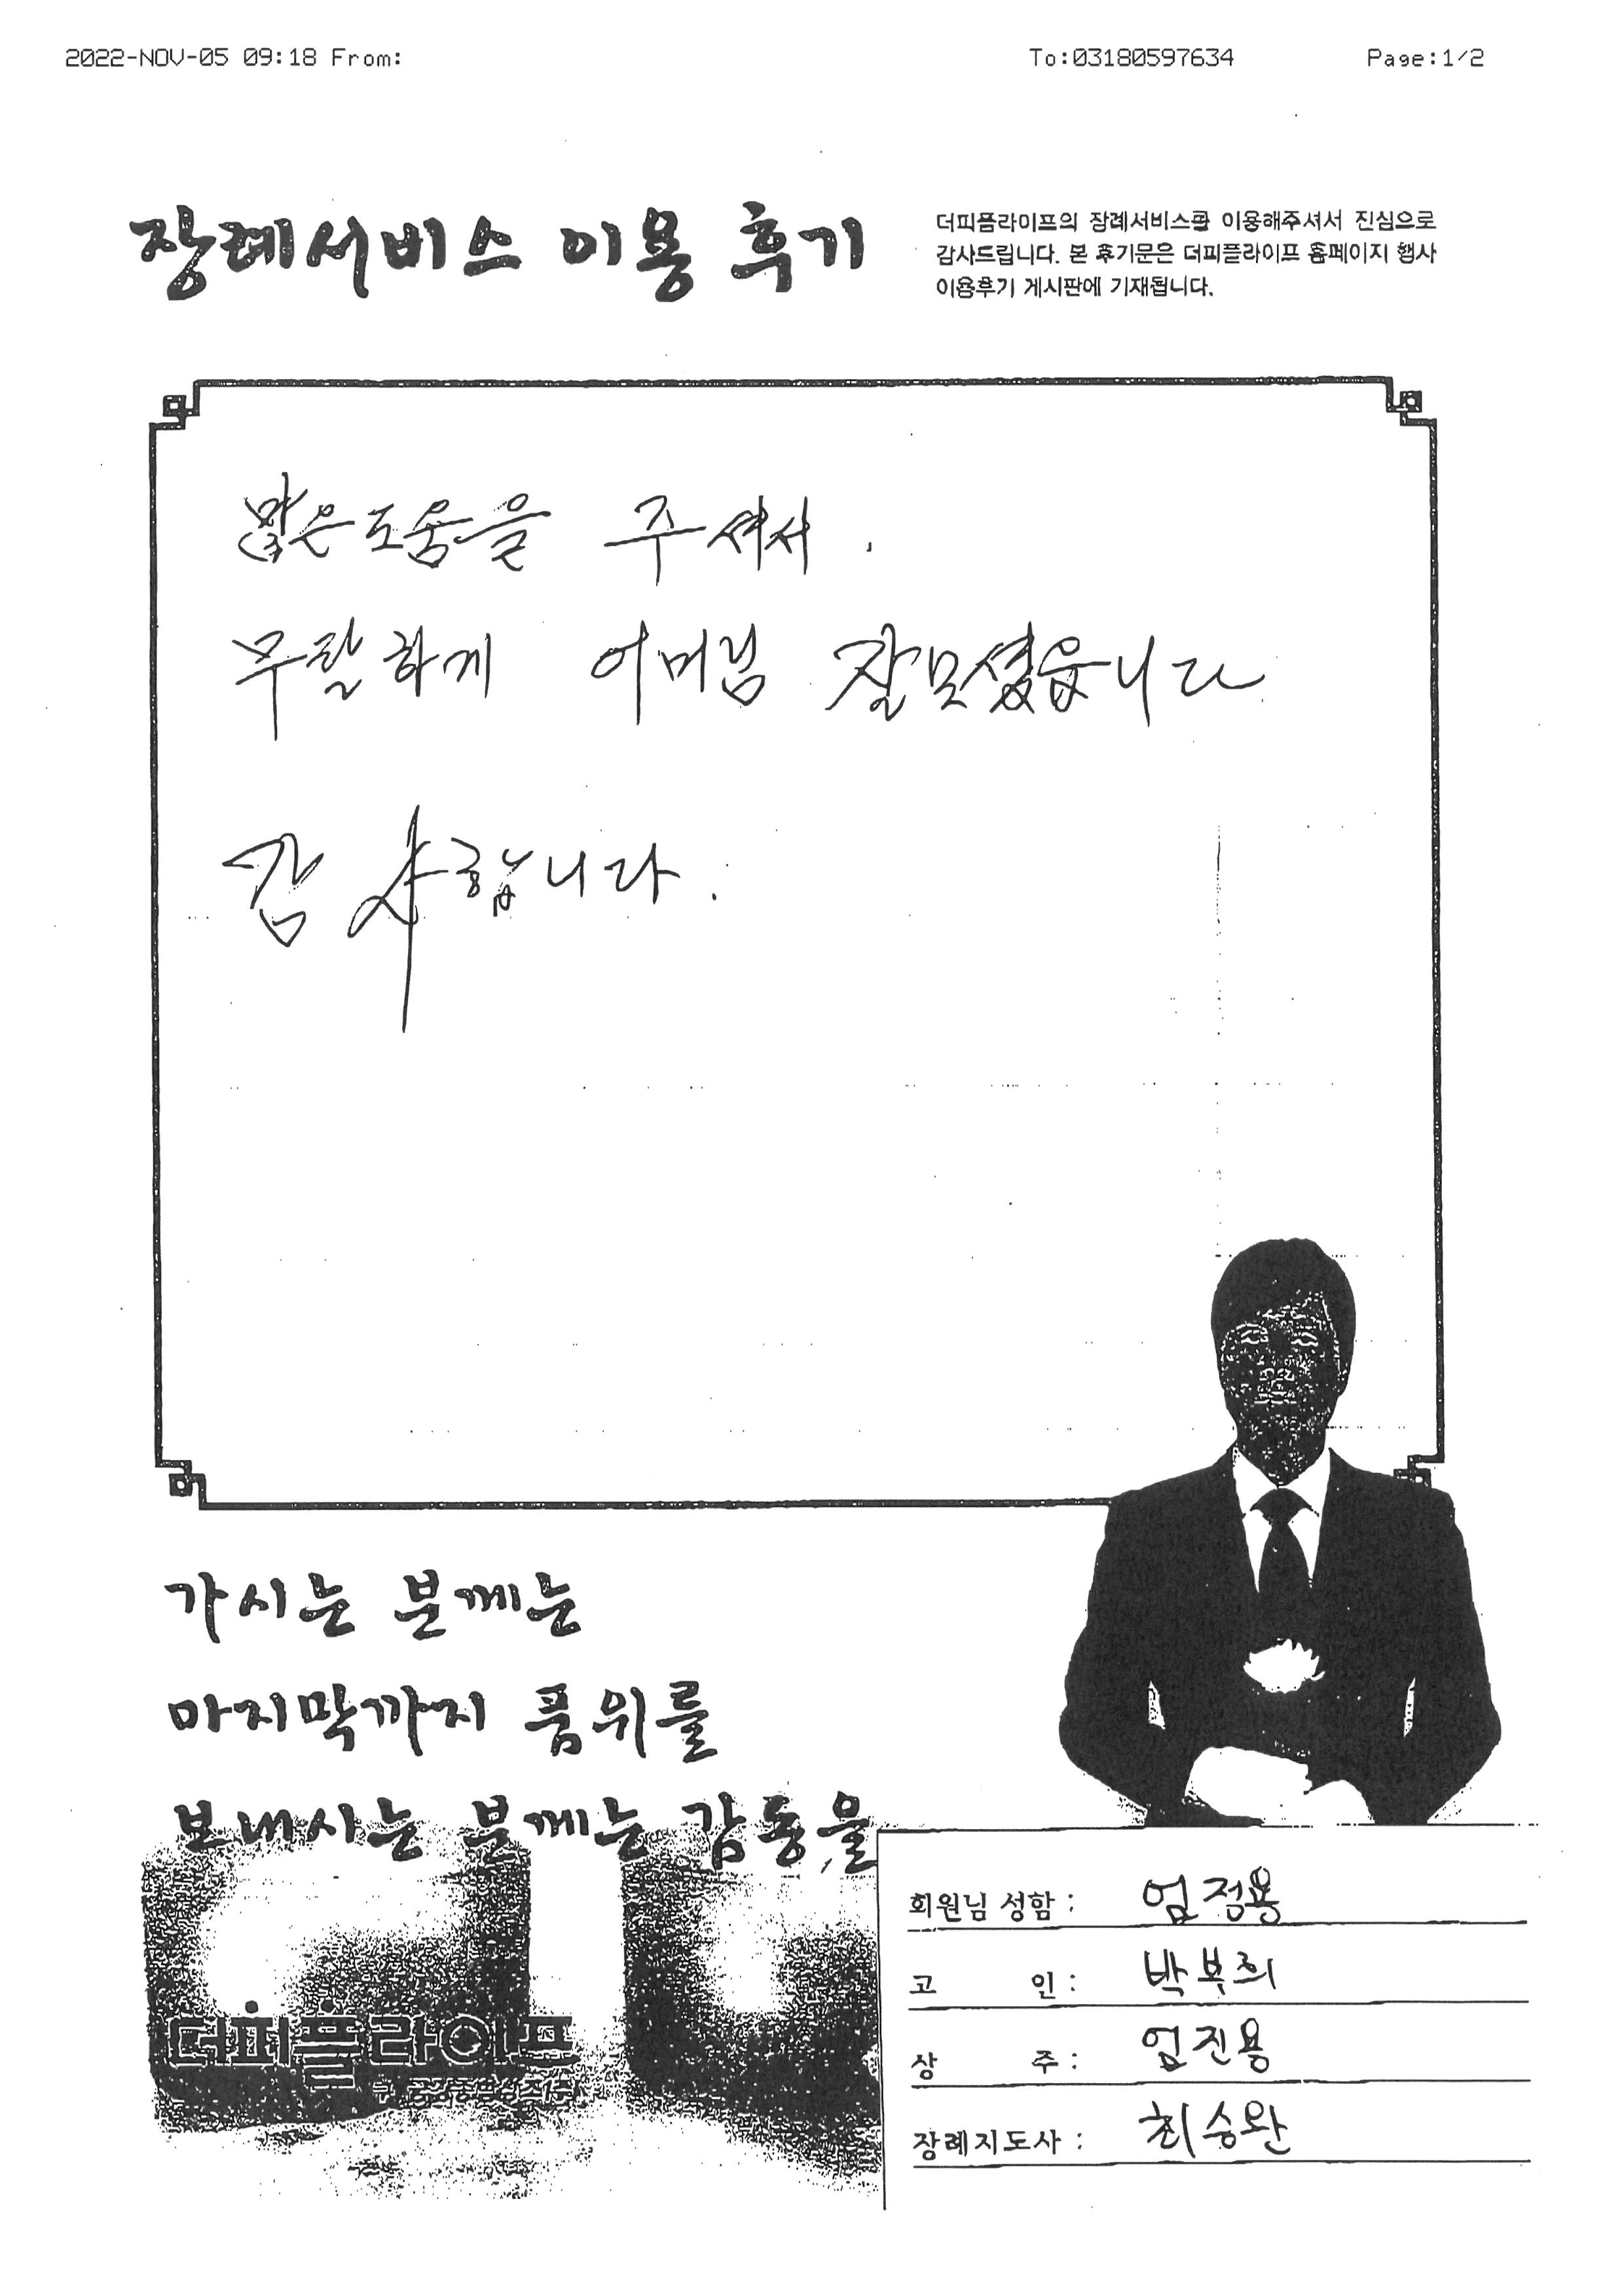 2022-NOV-05 09:18 From: To:03180597634 Page:1/2
장례서비스 이용 후기
더피플라이프의 장례서비스를 이용해주셔서 진심으로
감사드립니다. 본 후기문은 더피플라이프 홈페이지 행사
이용후기 게시판에 기재됩니다.
많은도움을 주셔서.
무탈하게 어머님 잘모셨읍니다
감사합니다.
가시는 분께는
마지막까지 품위를
보내시는 분께는 감동을
더피플라이프
회원님 성함 : 엄정용
고 인 : 박부희
상 주 : 엄진용
장례지도사 : 최승완